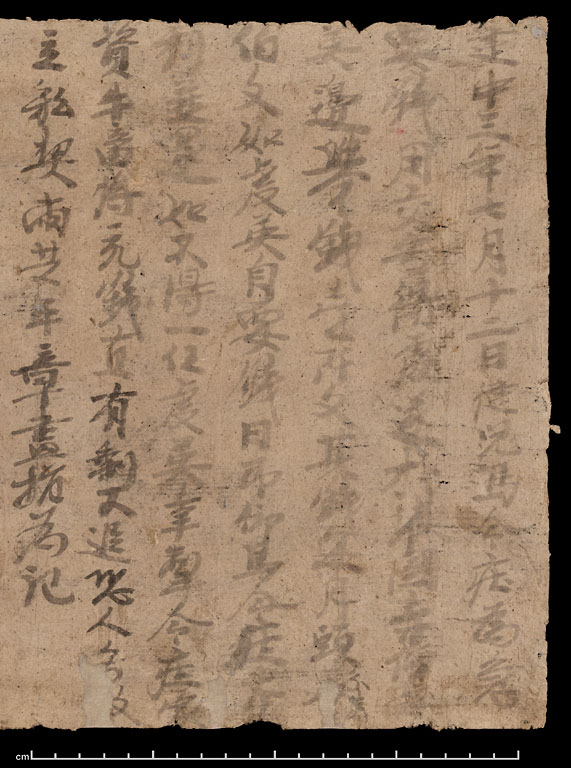 建中三年七月十二日健兒馬令痣為急
要錢用交無得處遂於護國寺僧虔
英邊舉錢壹仟文其錢每月頭
伯文如虔英自要錢日即仰馬令痣本
利並還如不得一任虔英牽掣令痣家
資牛畜將充錢直有剩不追恐人
立私契兩共平章畫指為記
cm